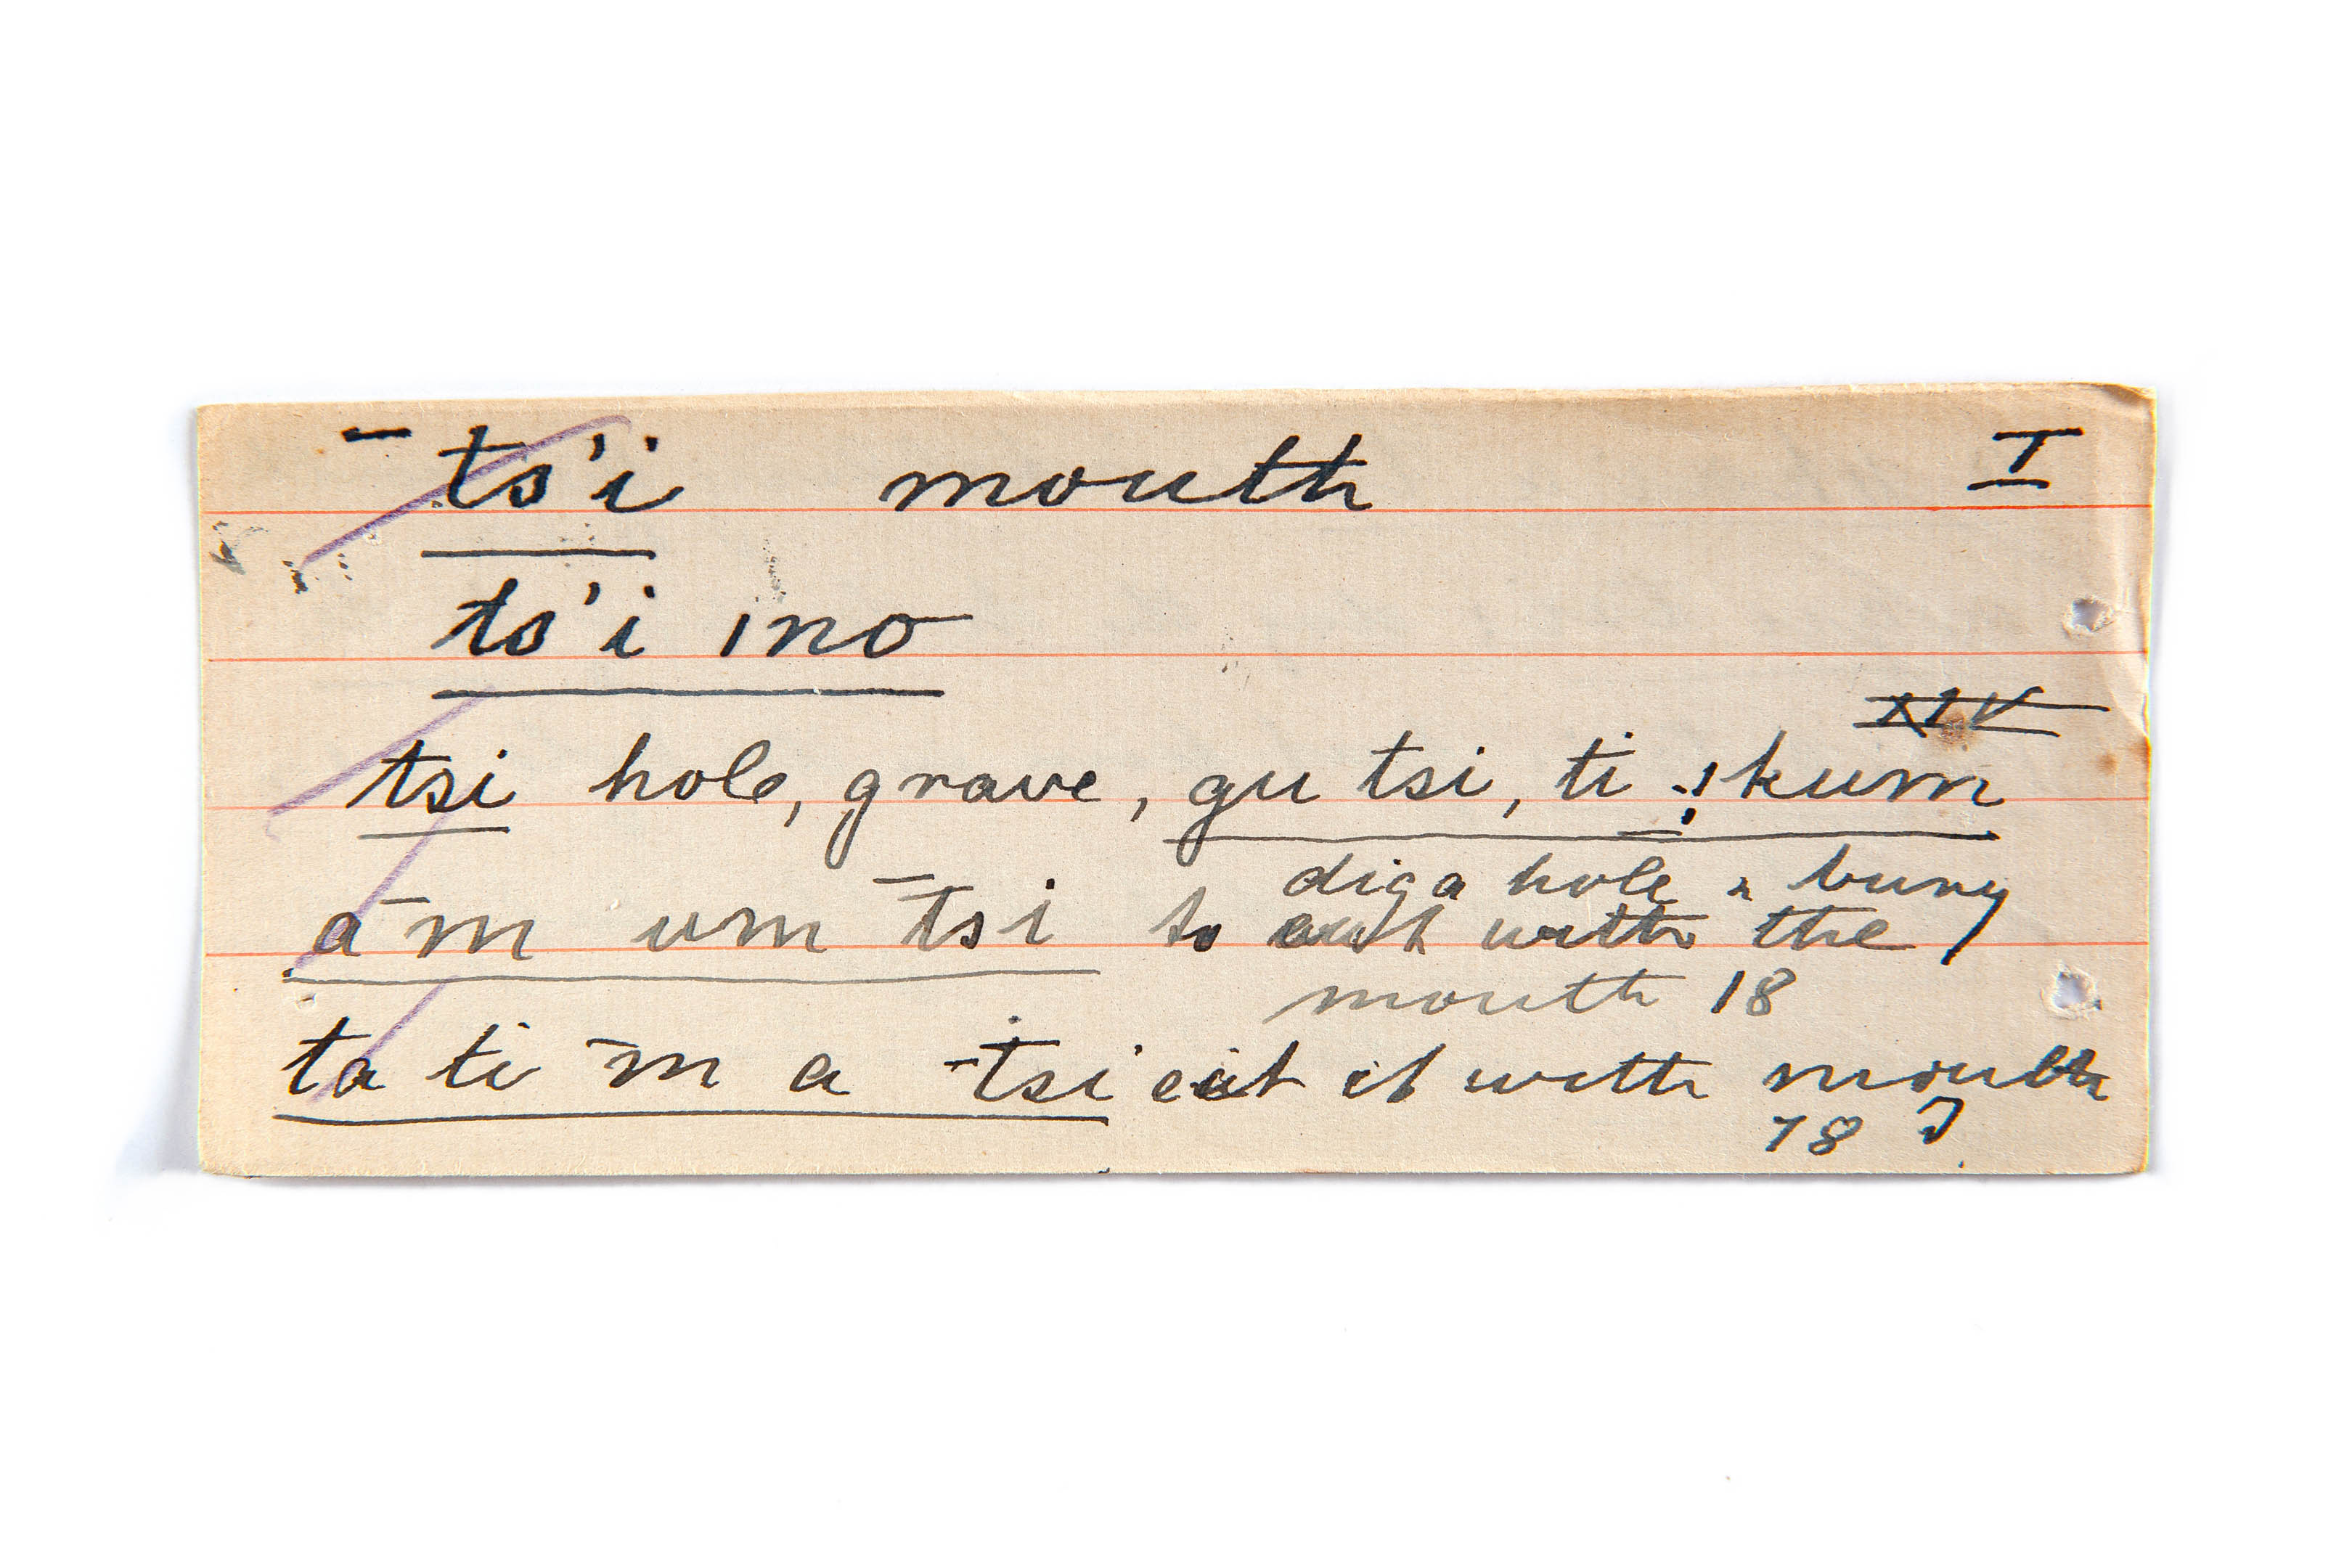 ¯ts'i mouth I
ts'i ıno
XIV
tsi hole, grave, gu tsi, ti !kum
dig a hole & bury
ā¯m um ¯tsi to cut with the
mouth 18
ta ti ¯m a ¯tsi cut it with mouth
78